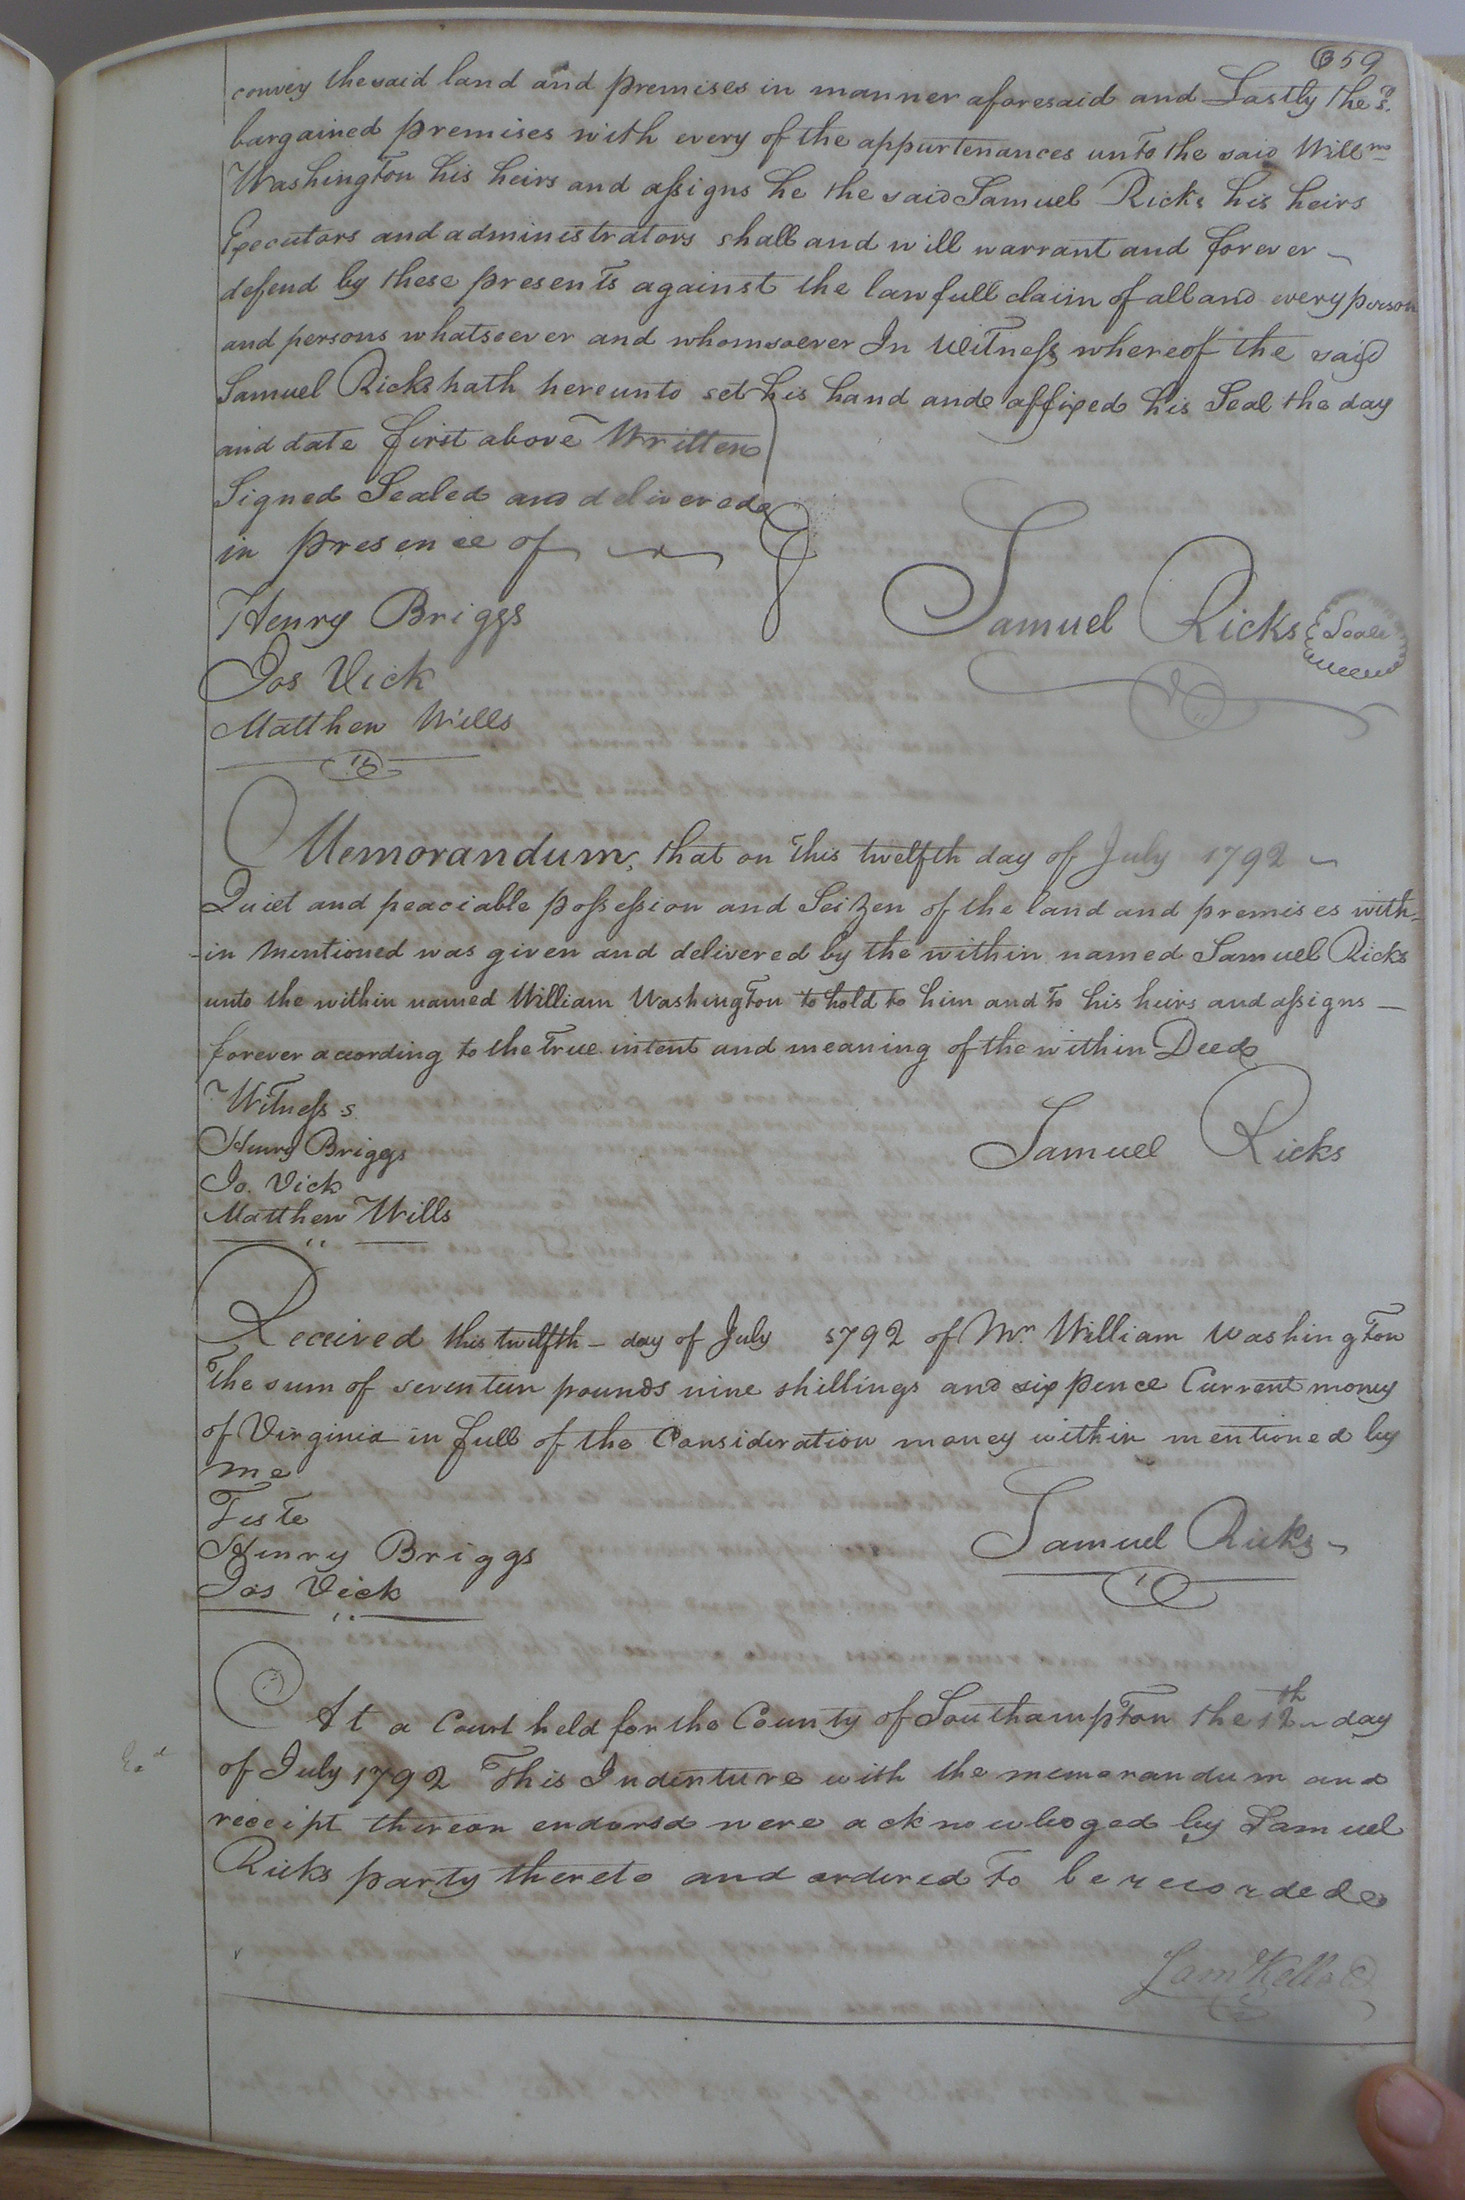 359
convey the said land and premises in manner aforesaid and Lastly the sd.
bargained premises with every of the appurtenances unto the said Willm
Washington his heirs and assigns he the said Samuel Ricks his heirs
Executors and administrators shall and will warrant and forever
defend by these presents against the lawfull claim of all and every person
and persons whatsoever and whomsoever In Witness whereof the said
Samuel Ricks hath hereunto set his hand and affixed his Seal the day
and date first above Written
Signed Sealed and delivered
in presence of
Henry Briggs
Jos Vick
Matthew Wills
Samuel Ricks Seale
Memorandum, that on this twelfth day of July 1792
Quiet and peaciable possession and Seizen of the land and premises with-
-in mentioned was given and delivered by the within named Samuel Ricks
unto the within named William Washington to hold to him and to his heirs and assigns
forever according to the true intent and meaning of the within Deed
Witness s
Henry Briggs
Jo. Vick
Matthew Wills
Samuel Ricks
Received this twelfth - day of July 1792 of Mr William Washington
The sum of seventeen pounds nine shillings and six pence Current money
of Virginia in full of the Consideration money within mentioned by
me
Teste
Henry Briggs
Jos Vick
Samuel Ricks
At a Court held for the County of Southampton the 12th day
of July 1792 This Indenture with the memorandum and
receipt thereon endorsd were acknowledged by Samuel
Ricks party thereto and ordered to be recorded
Exd
Sam Kello C